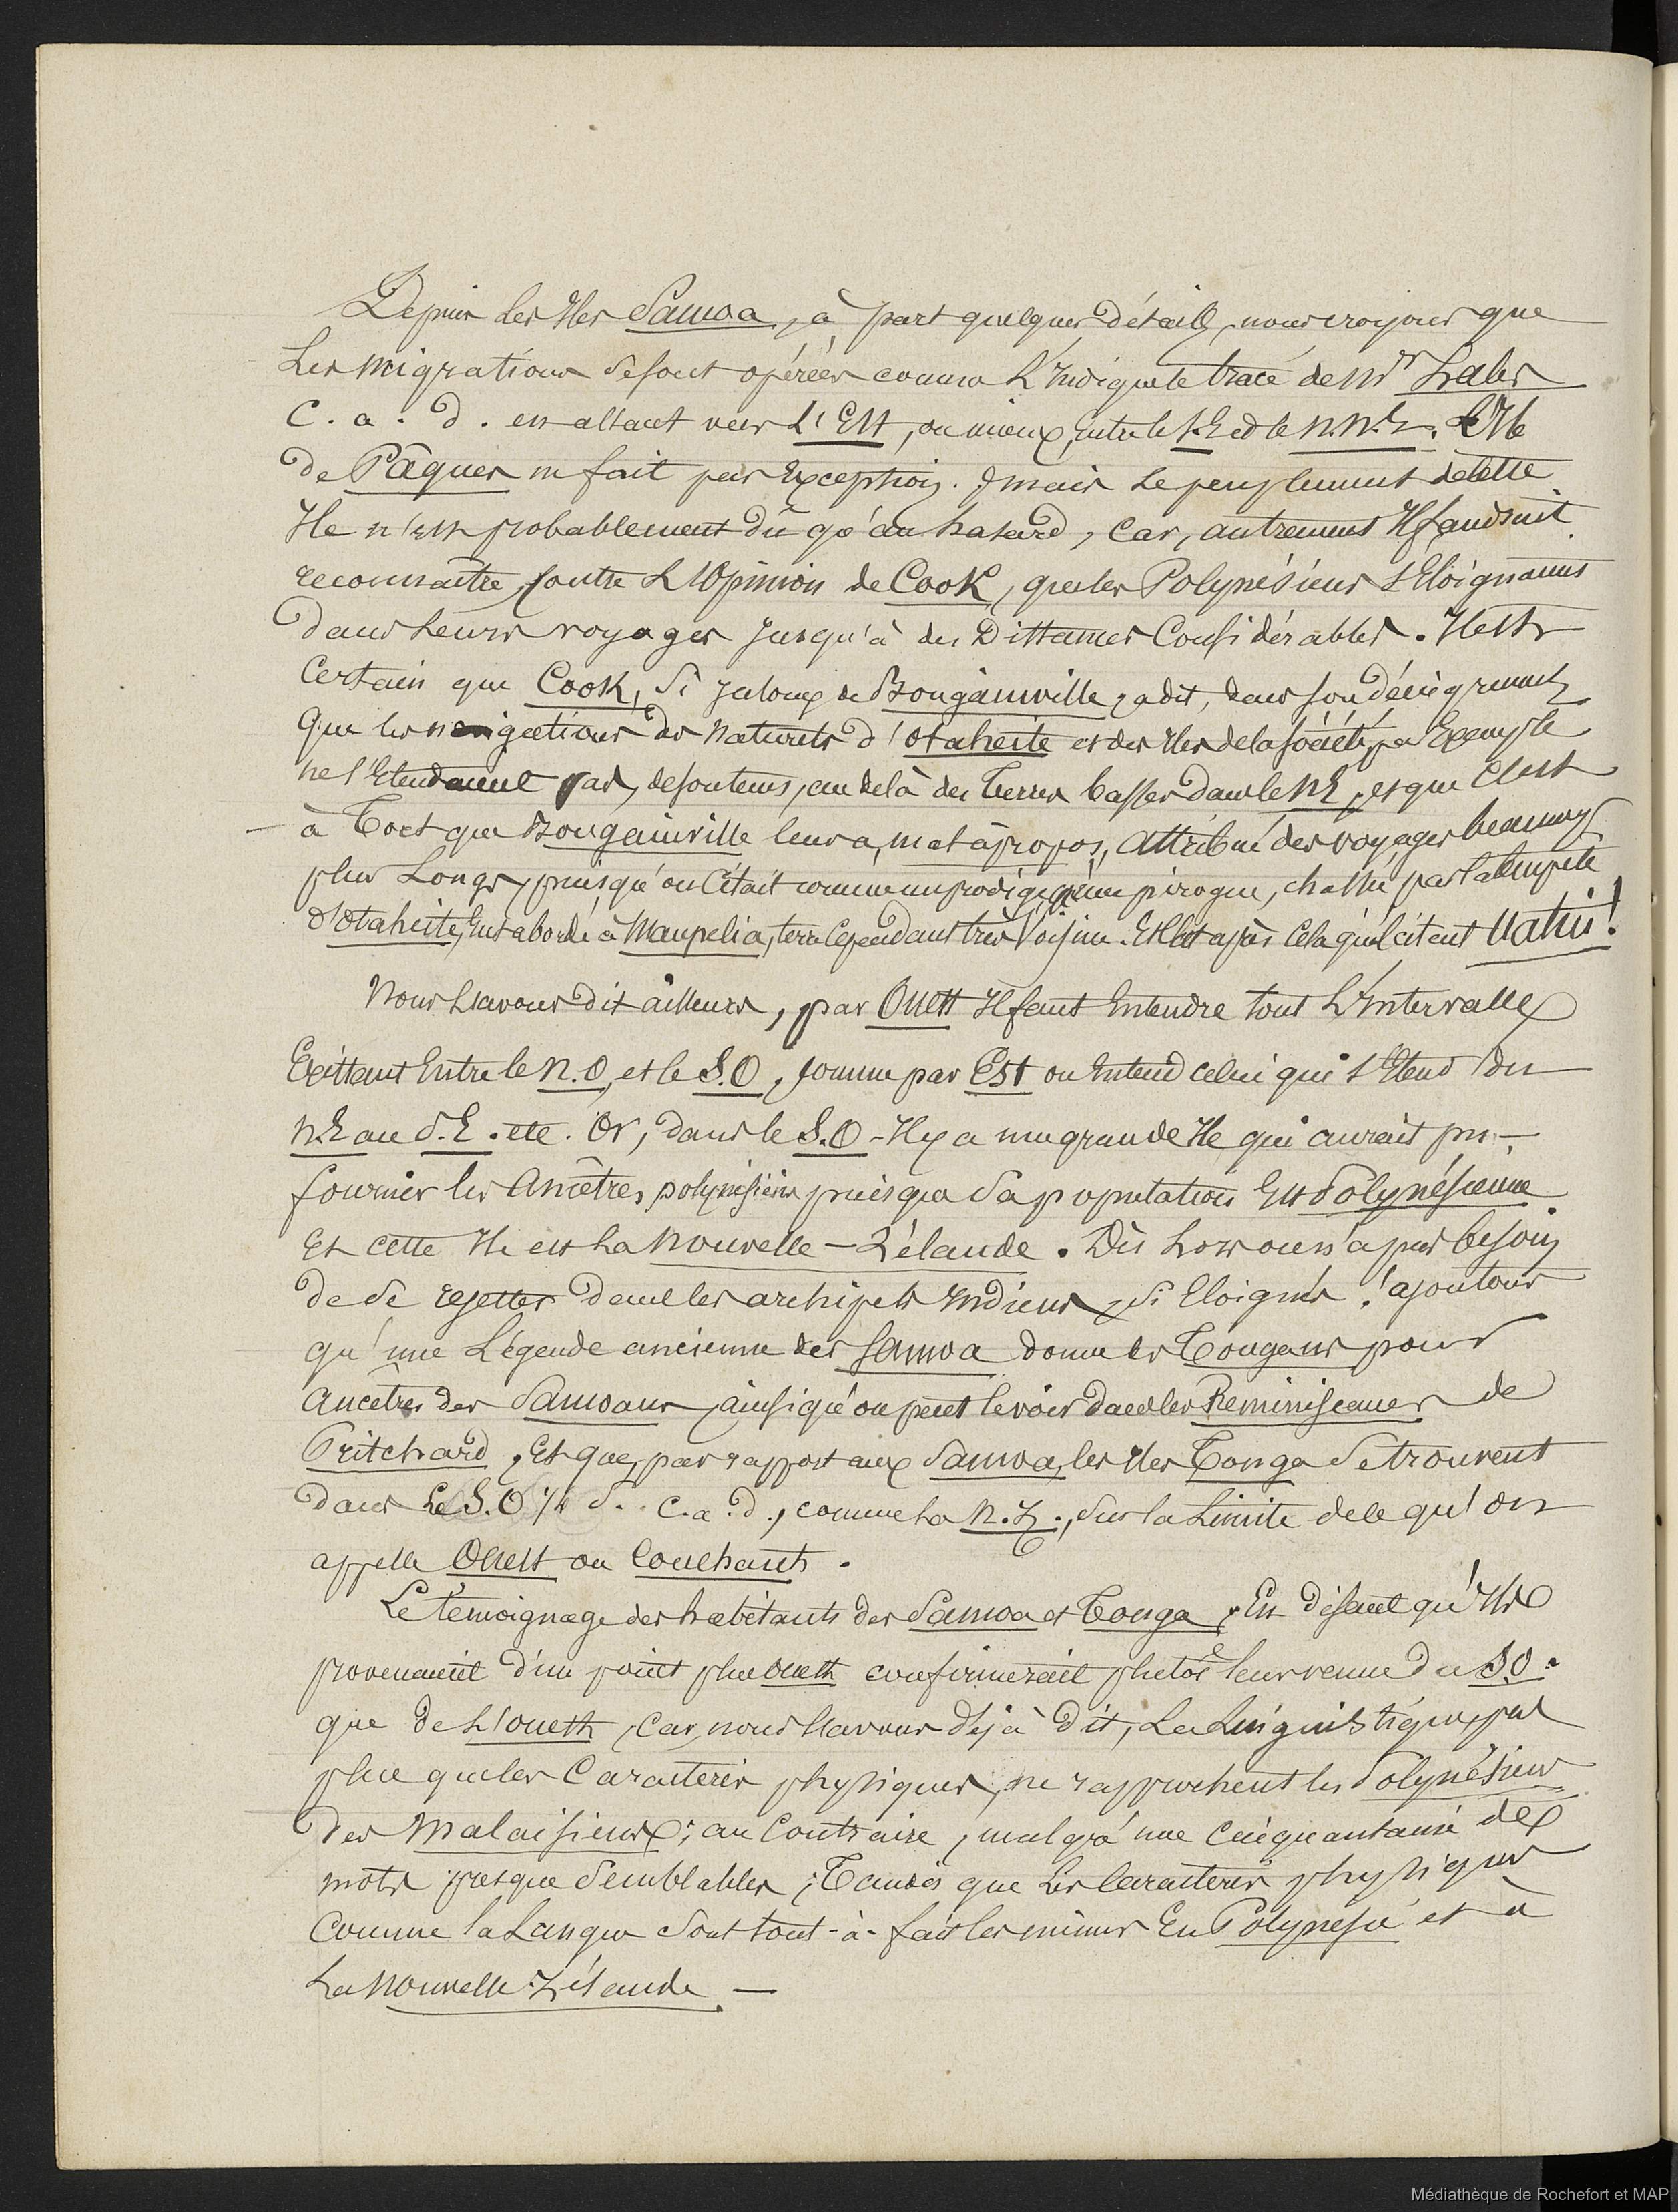 Depuis les Iles Samoa, à part quelques détails, nous croyons que
Les migrations se sont opérées comme L'Indique le tracé de Mr Hales
C. a. d. en allant vers L'Est, ou mieux, entre le et le N.N.E. L'Ile
de Pâques ne fait pas Exception. mais Le peuplement de cette
Ile n'est probablement dû qu'au hasard, Car, autrement Il faudrait
reconnaître, contre L'Opinion de Cook, que les Polynésiens s'Eloignaient
dans Leurs voyages Jusqu'à des Distances Considérables. Il est
Certain que Cook, Si Jaloux de Bougainville, a dit, dans son dénigrement
Que les navigations des Naturels d'Otaheite et des Iles de la société, par Exemple
ne s'Etendaient pas, de son tems, au delà des Terres basses dans le NE, et que C'est
à Tort que Bougainville leur a, mal à propos, Attribué des voyages beaucoup
plus Longs, puisqu'on Citait comme un prodige qu'une pirogue, chassée par la tempête
d'Otaheite, Eut abordé à Maupelia, terre Cependant très Voisine. Et C'est après Cela qu'il citait
Nous L'avons dit ailleurs, par Ouest Il faut Entendre tout L'Intervalle
Existant Entre le N.O, et le S.O, comme par Est on Entend celui qui s'Etend du
N.E au S.E. etc. Or, dans le S.O - Il y a une grande Ile qui aurait pu -
fournir les Ancêtres polynésiens puisque Sa population Est Polynésienne
Et cette Ile est La Nouvelle - Zélande. Dès Lors on n'a pas besoin
de Se rejetter dans les archipels Indiens, Si Eloignés ! ajoutons
qu'une Légende ancienne des Samoa donne les Tongans pour
Ancêtres des Samoans, ainsi qu'on peut le voir dans les Reminiscences de
Pritchard, Et que, par rapport aux Samoa, les Iles Tonga Se trouvent
dans Le S.O 1/4 S. . C. a. d., comme La N.Z., Sur la Limite de ce qu'on
appelle Ouest ou Couchant.
Le témoignage des habitants des Samoa et Tonga, En disant qu'Ils
provenaient d'un point plus ouest confirmerait plutôt leur venue du S.O.
que de L'ouest, Car, nous L'avons déjà Dit, La Linguistique, pas
plus que les Caractères physiques, ne rapprochent les Polynésiens
des Malaisiens; au Contraire, malgré une Cinquantaine de
mots presque Semblables; Tandis que Les Caractères physiques
Comme la Langue Sont tout-à-fait les mêmes En Polynésie et à
La Nouvelle Zélande. -
Médiathèque de Rochefort et MAP